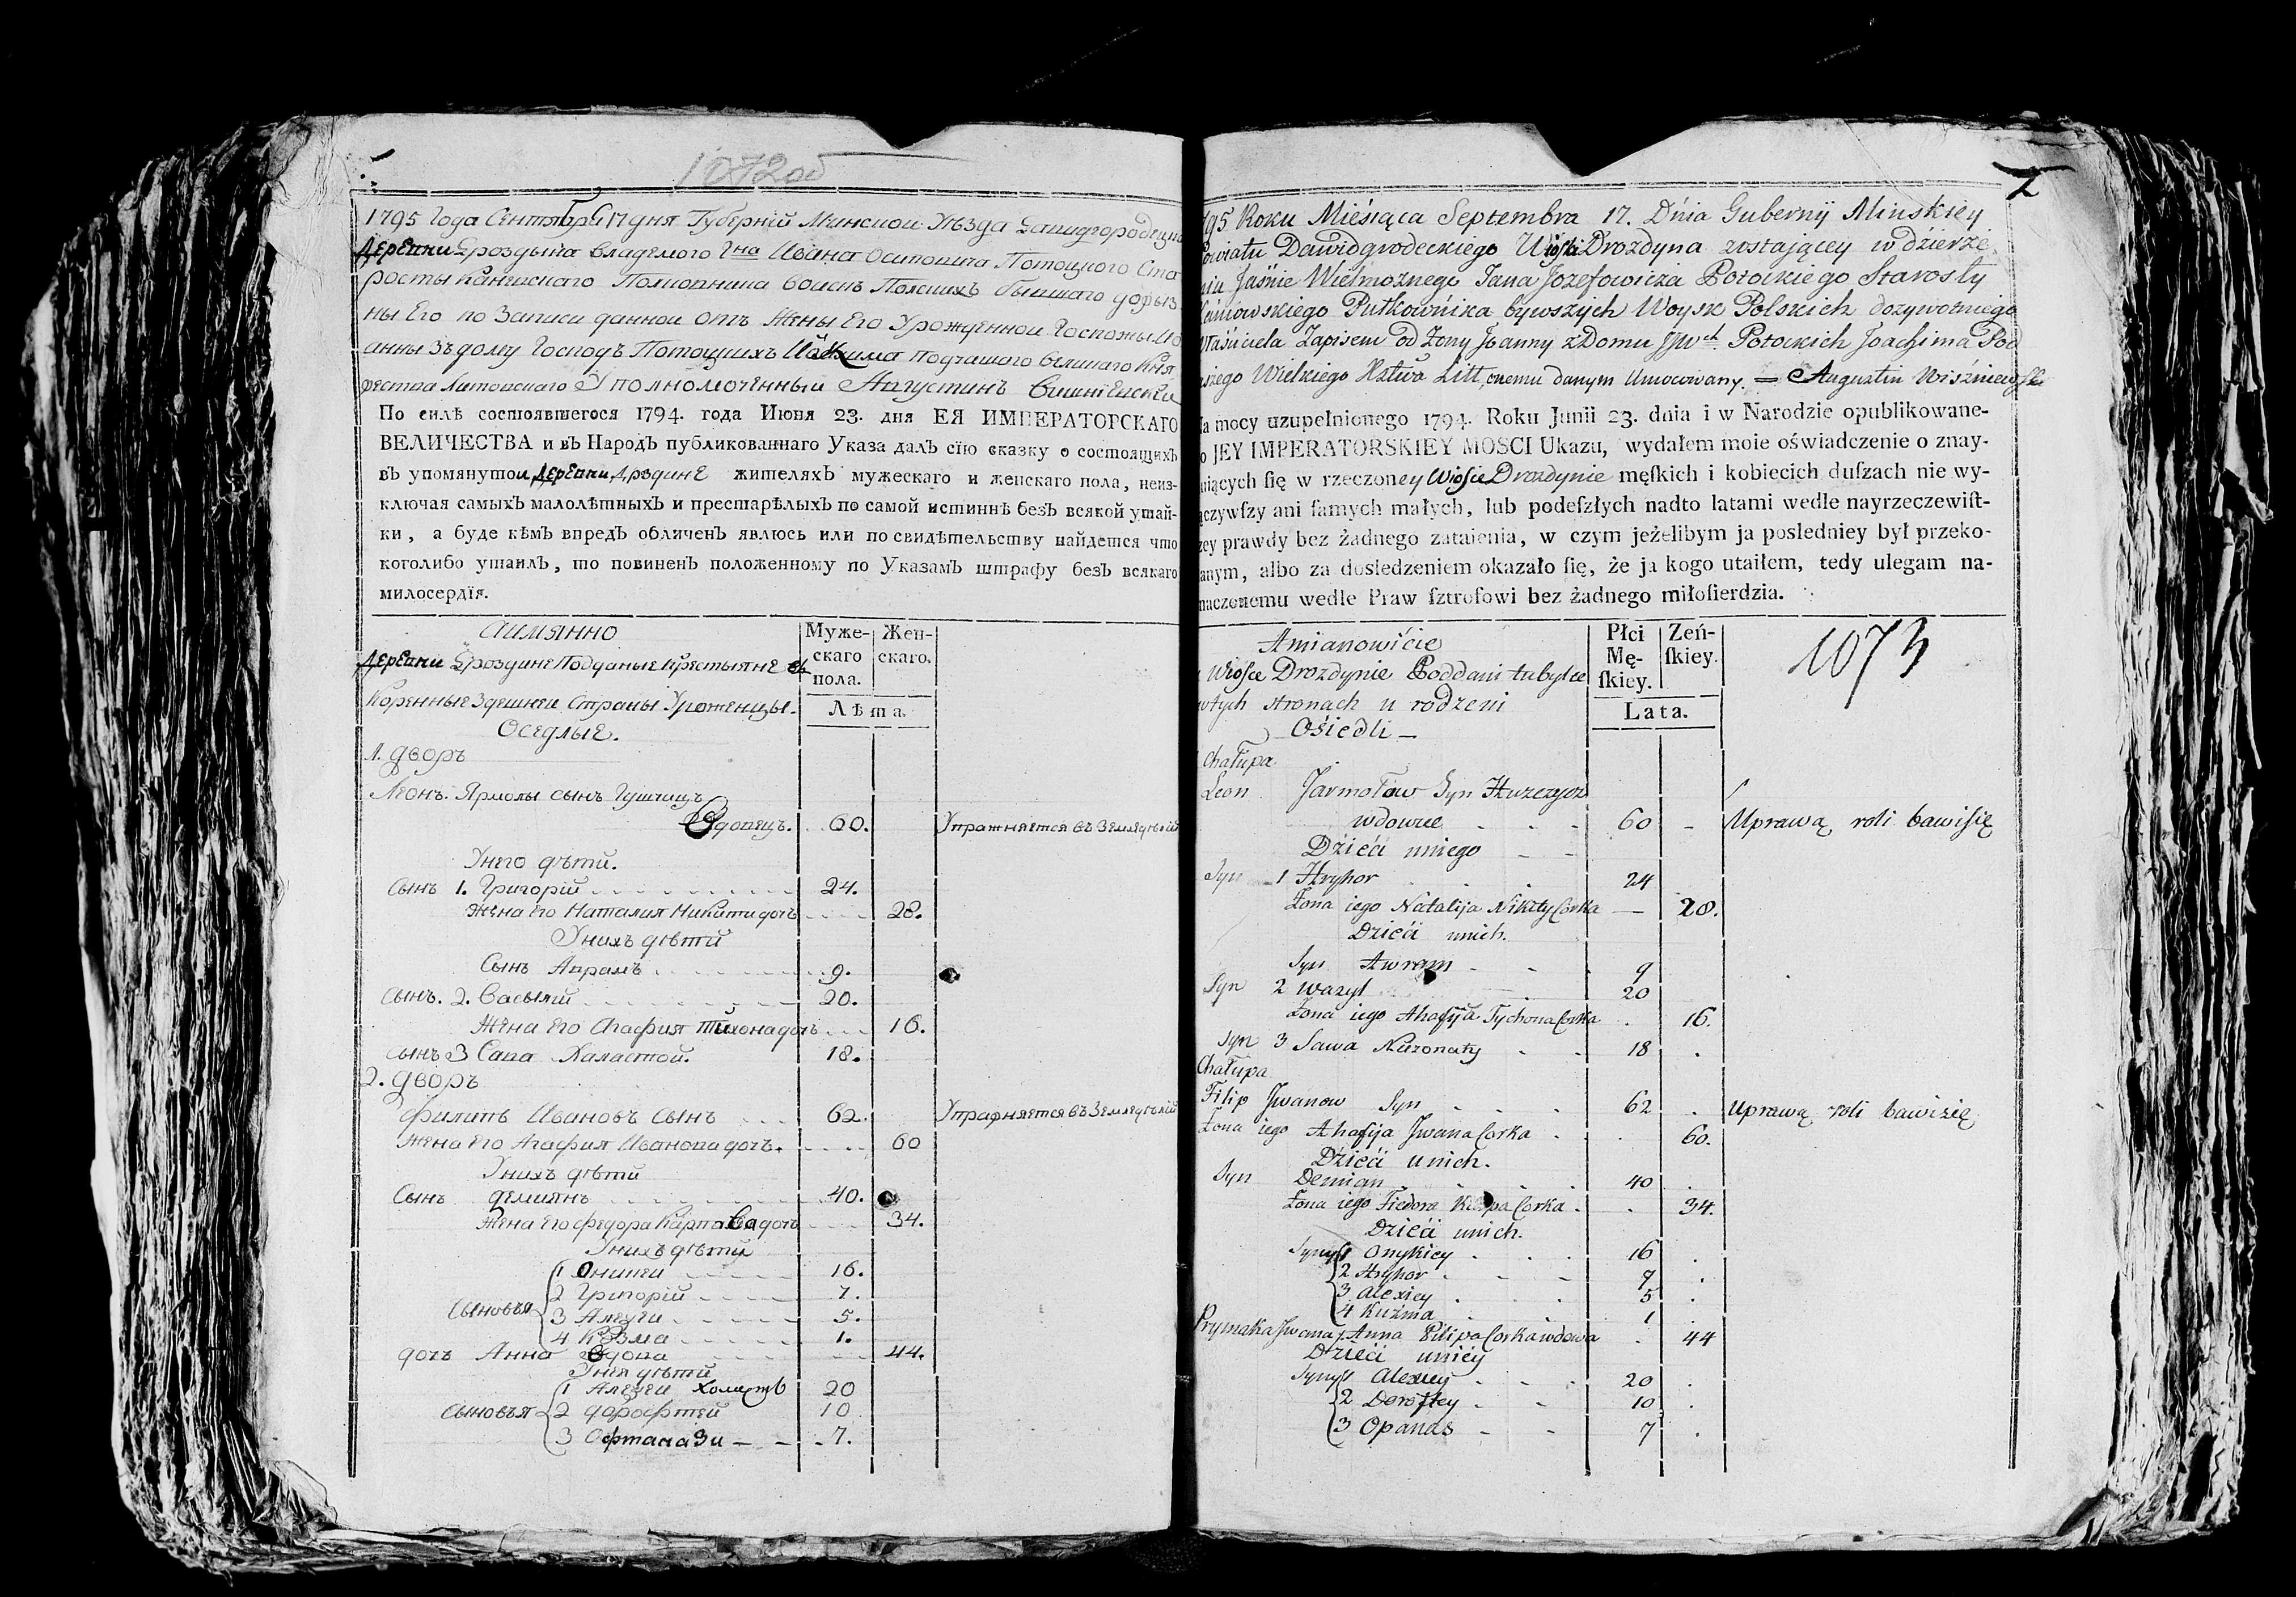 1072 об
1795 Года Сентября 17 дня Губерніи Минской Уѣзда Давидгородецка
Деревни Дроздына владемого Гна Ивана Осиповича Потоцкого Ста
росты Каневского Полковника воискъ Полскихъ бывшаго
ны Его по Записи данной отъ Жены Его Урожденной Госпожы Ио
анны Здому Господъ Потоцкихъ Иоахима подчашого великаго Кня
жества Литовскаго Уполномоченный Августинъ Вишневский
По силѣ состоявшегося 1794. года Июня 23. дня ЕЯ ИМПЕРАТОРСКАГО
ВЕЛИЧЕСТВА и въ Народъ публикованнаго Указа далъ сїю сказку о состоящихъ
въ упомянутой деревни Дроздине жителяхъ мужескаго и женскаго пола, неиз-
ключая самыхъ малолѣтныхъ и престарѣлыхъ по самой истиннѣ безъ всякой утай-
ки, а буде кѣмъ впредь обличенъ явлюсь или по свидѣтельству найдется что
коголибо утаилъ, то повиненъ положенному по Указамъ штрафу безъ всякаго
милосердїя.
Аимянно
Муже-скаго пола.
Жен-скаго.
Лѣта.
Деревни Дроздине Подданые крестьяне
Коренные Здешней Страны Уроженцы.
Оседлые.
1. дворъ
Леонъ Ярмолы сынъ Гушчицъ
Вдовецъ. 60. Упражняется въ Земледѣлій
Унего дѣти.
Сынъ 1. Григорій 24.
Жена его Наталия Никити дочь 28.
Унихъ дѣти
Сынъ Аврамъ 9.
Сынъ. 2. Василій 20.
Жена его Агафия Тихона дочь 16.
сынъ 3 Сава Халастой. 18.
2. дворъ
Филипъ Ивановъ Сынъ 62. Упражняется въ Земледѣлій
Жена его Агафия Иванова дочь. 60
Унихъ дѣти
Сынъ Демиянъ 40.
Жена его Федора Карпова дочь 34.
Унихъ дѣти
Сыновья 1 Оникеи 16.
2 Григорій 7.
3 Алексеи 5.
4 Козма 1.
дочь Анна Вдова 44.
Унея дѣти
Сыновья 1 Алексеи Холостъ 20
2 Дорофтей 10
3 Офтанази 7.
2
795 Roku Miesiąca Septembra 17. Dnia Gubernii Minskiey
owiatu Dawidgrodeckiego Wioski Drozdyna zostaiącey w dzierże
niu Jaśnie Wielmożnego Jana Jozefowicza Potockiego Starosty
Kaniowskiego Pułkownika bywszych Woysk Polskich dożywotniego
Właściciela Zapisem od Żony Joanny z Domu JJWch Potockich Joachima Pod
szego Wielkiego Xztwa Litt, onemu danym Umocowany. = Augustin Wiszniewski
a mocy uzupełnionego 1794. Roku Junii 23. dnia i w Narodzie opublikowane-
o JEY IMPERATORSKIEY MOSCI Ukazu, wydałem moie oświadczenie o znay-
uiących się w rzeczoney Wiosce Drozdynie męſkich i kobiecich duſzach nie wy-
ączywſzy ani ſamych małych, lub podeſzłych nadto latami wedle nayrzeczewiſt-
zey prawdy bez żadnego zatajenia, w czym jeżelibym ja posledniey był przeko-
anym, albo za dosledzeniem okazało ſię, że ja kogo utaiłem, tedy ulegam na-
naczonemu wedle Praw ſztrofowi bez żadnego miłoſierdzia.
Amianowićie
Płci Mę-ſkiey.
Zeń-ſkiey.
Lata.
1073
Wiosce Drozdynie Poddani tubylce
wtych stronach urodzeni
Ośiedli
Chałupa
Leon Jarmołow Syn
wdowiec 60 Uprawą roli bawiſię
Dźieći uniego
Syn 1 Hryhor 24
Żona iego Natalija Nikity Corka 28.
Dzieći unich.
Syn Awram 9
Syn 2 Wazyl 20
Żona iego Ahafija Tychona Corka 16.
Syn 3 Sawa Nieżonaty 18
Chałupa
Filip Jwanow Syn 62 Uprawą roli bawiśię
Żona iego Ahafija Jwana Corka 60.
Dźieći unich.
Syn Demian 40
Żona iego Fiedora Karpa Corka 34.
Dzieći unich.
Syny 1 Onykiey 16
2 Hryhor 7
3 Alexiey 5
4 Kuźma 1
Prymaka Jwana Ż. Anna Filipa Corka wdowa 44
Dźieći unićy
Syny 1 Alexiey 20
2 Doroftey 10
3 Opanas 7